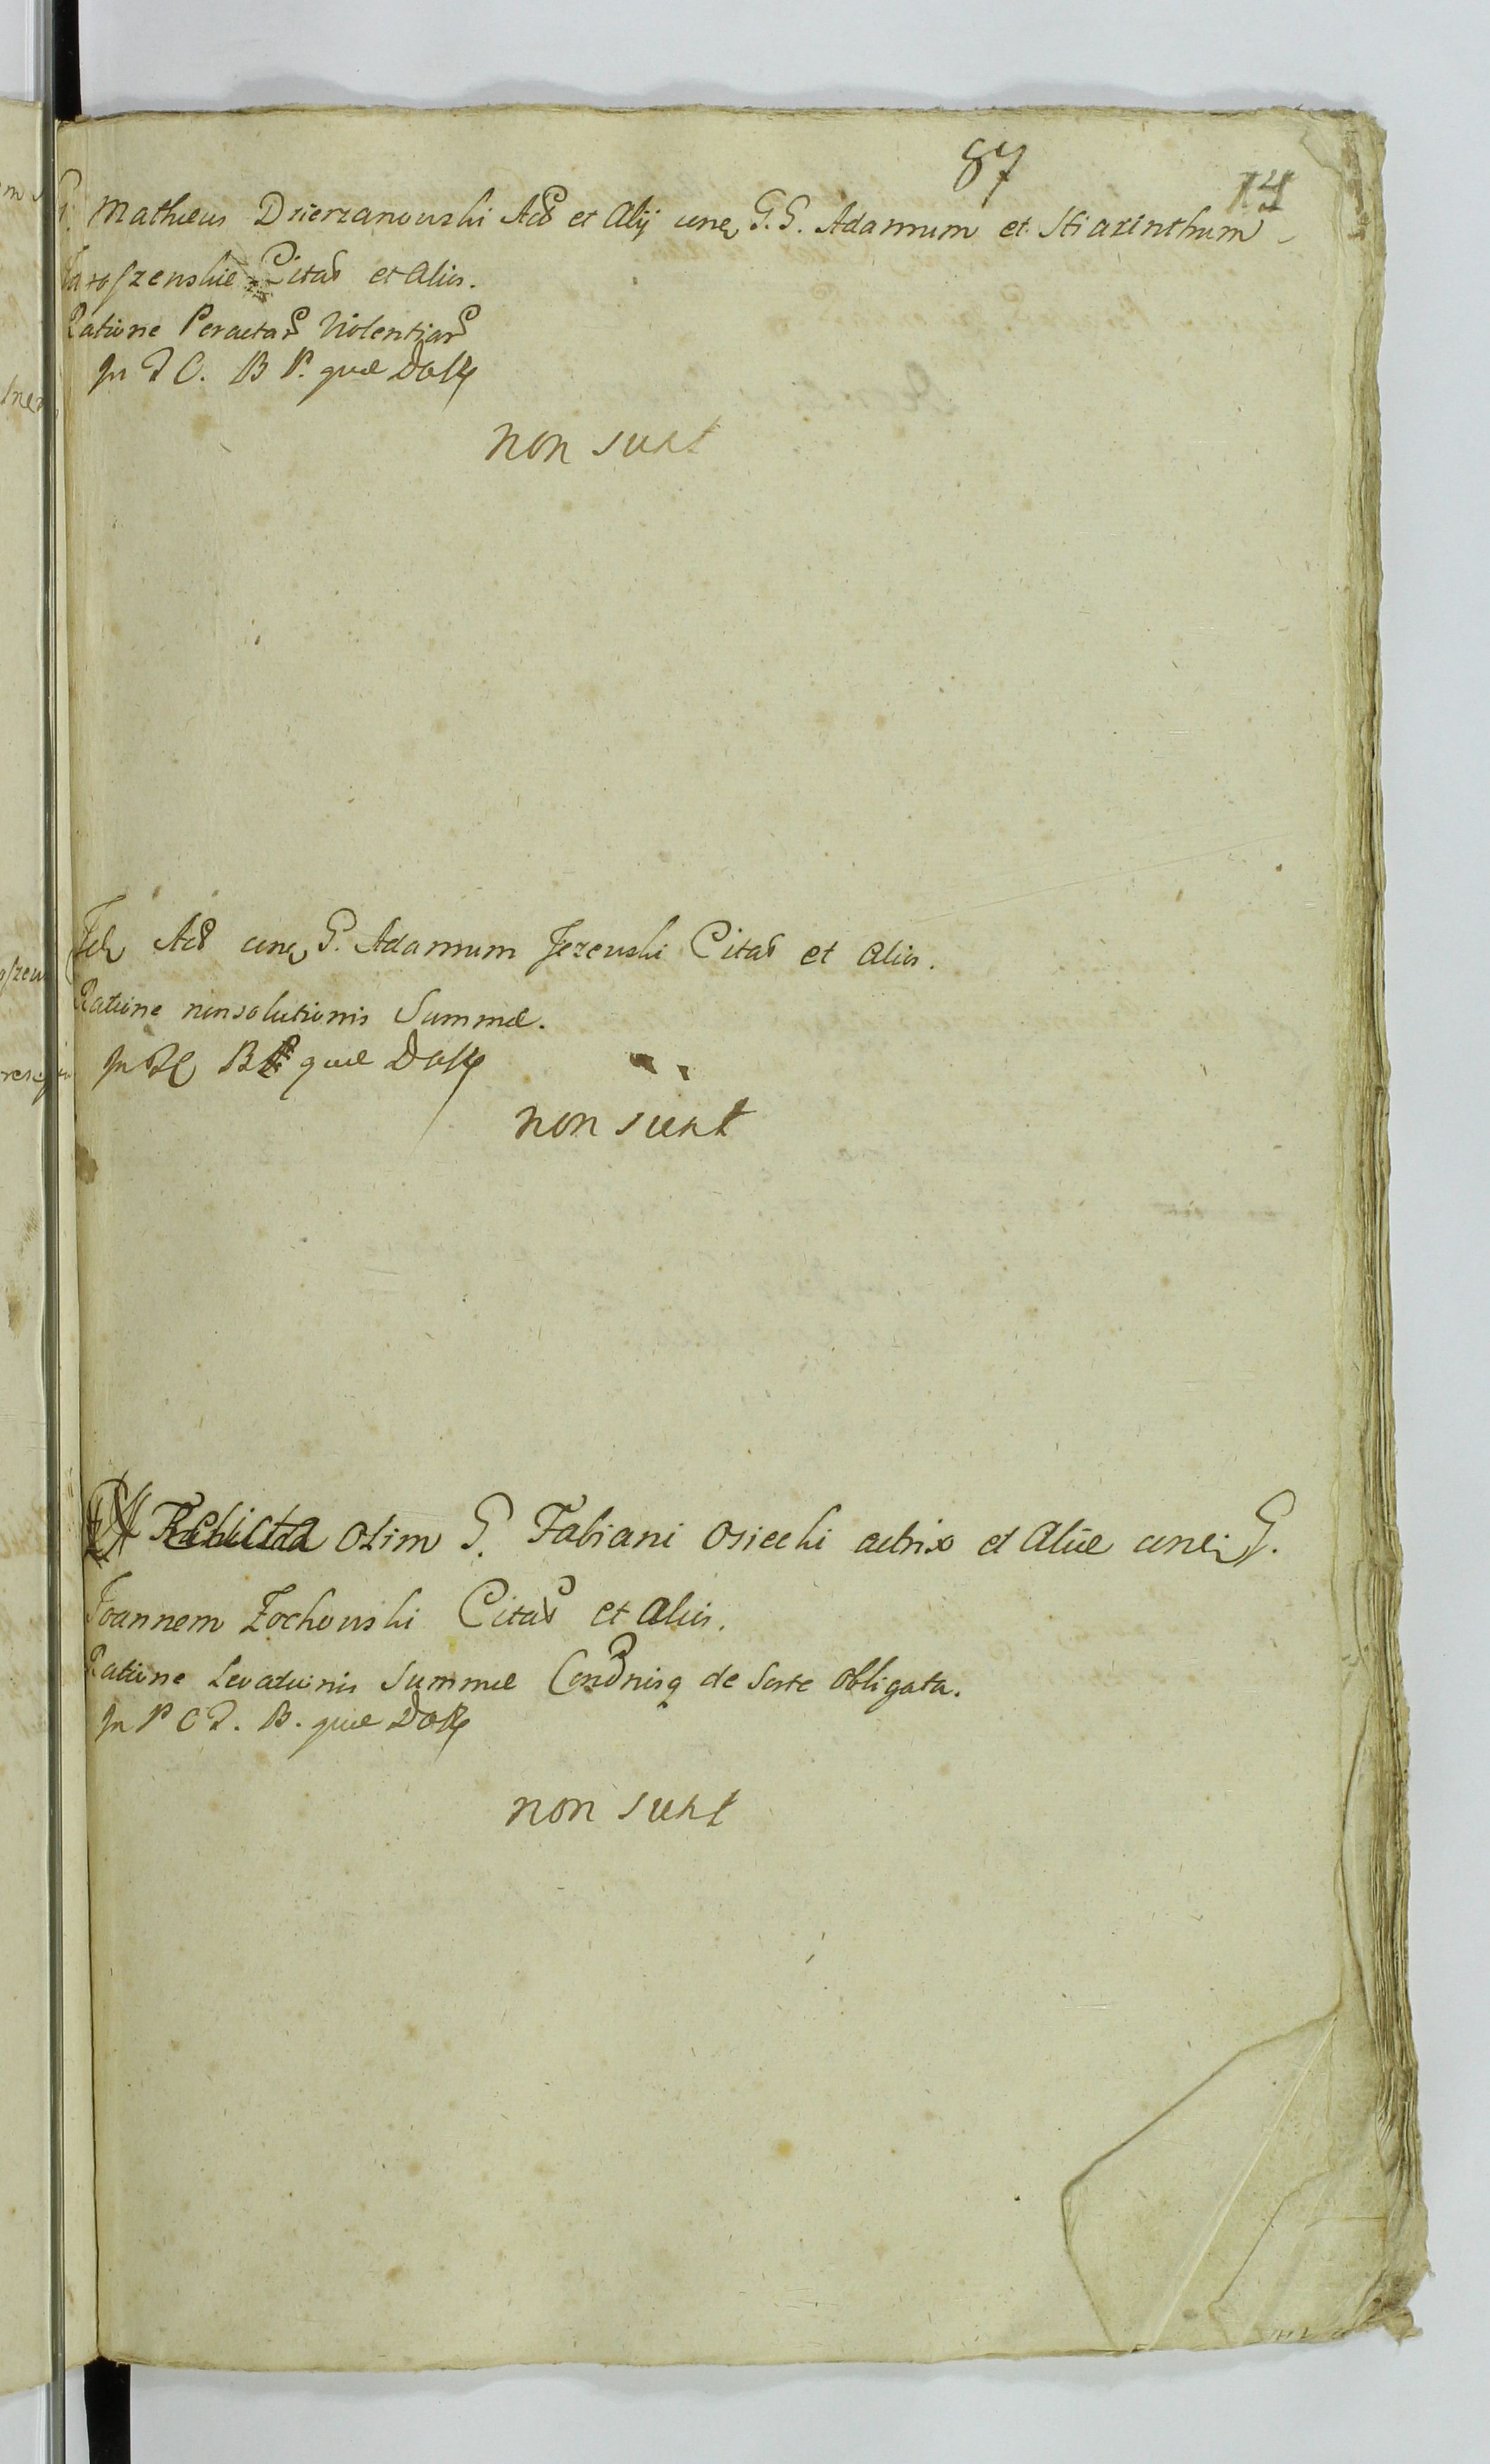 87
14
G. Matheus Drierzanowski Act et Alij cunq G. G. Adamum et Hiazinthum
Jaroszenskie Citat et Alios.
Ratione Peractar Violentiar
In T C. B P. quae
non sunt
Act cunq G. Adamum Jezewski Citat et alios.
Ratione nonsolutionis Summae.
In quae
non sunt
Relicta olim G. Fabiani Osiecki actrix et aliae G.
Joannem Zochowski Citat et alios.
Ratione Levationis Summae Condnisq de Sorte obligata.
In P C T. B. quae
non sunt